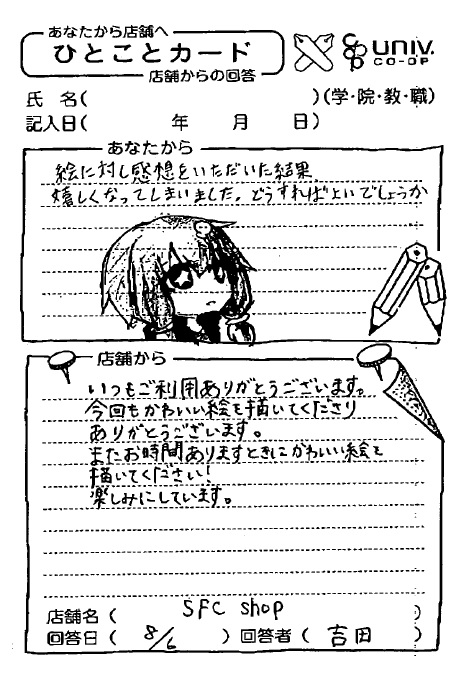 あなたから店舗へ
ひとことカード
店舗からの回答
UNIV.
CO-OP
氏 名( )(学・院・教・職)
記入日( 年 月 日)
あなたから
絵に対し感想をいただいた結果
嬉しくなってしまいました。どうすればよいでしょうか
店舗から
いつもご利用ありがとうございます。
今回もかわいい絵を描いてくださり
ありがとうございます。
またお時間ありますときにかわいい絵を
描いてください!
楽しみにしています。
店舗名( SFC shop )
回答日( 8/6 ) 回答者( 吉田 )